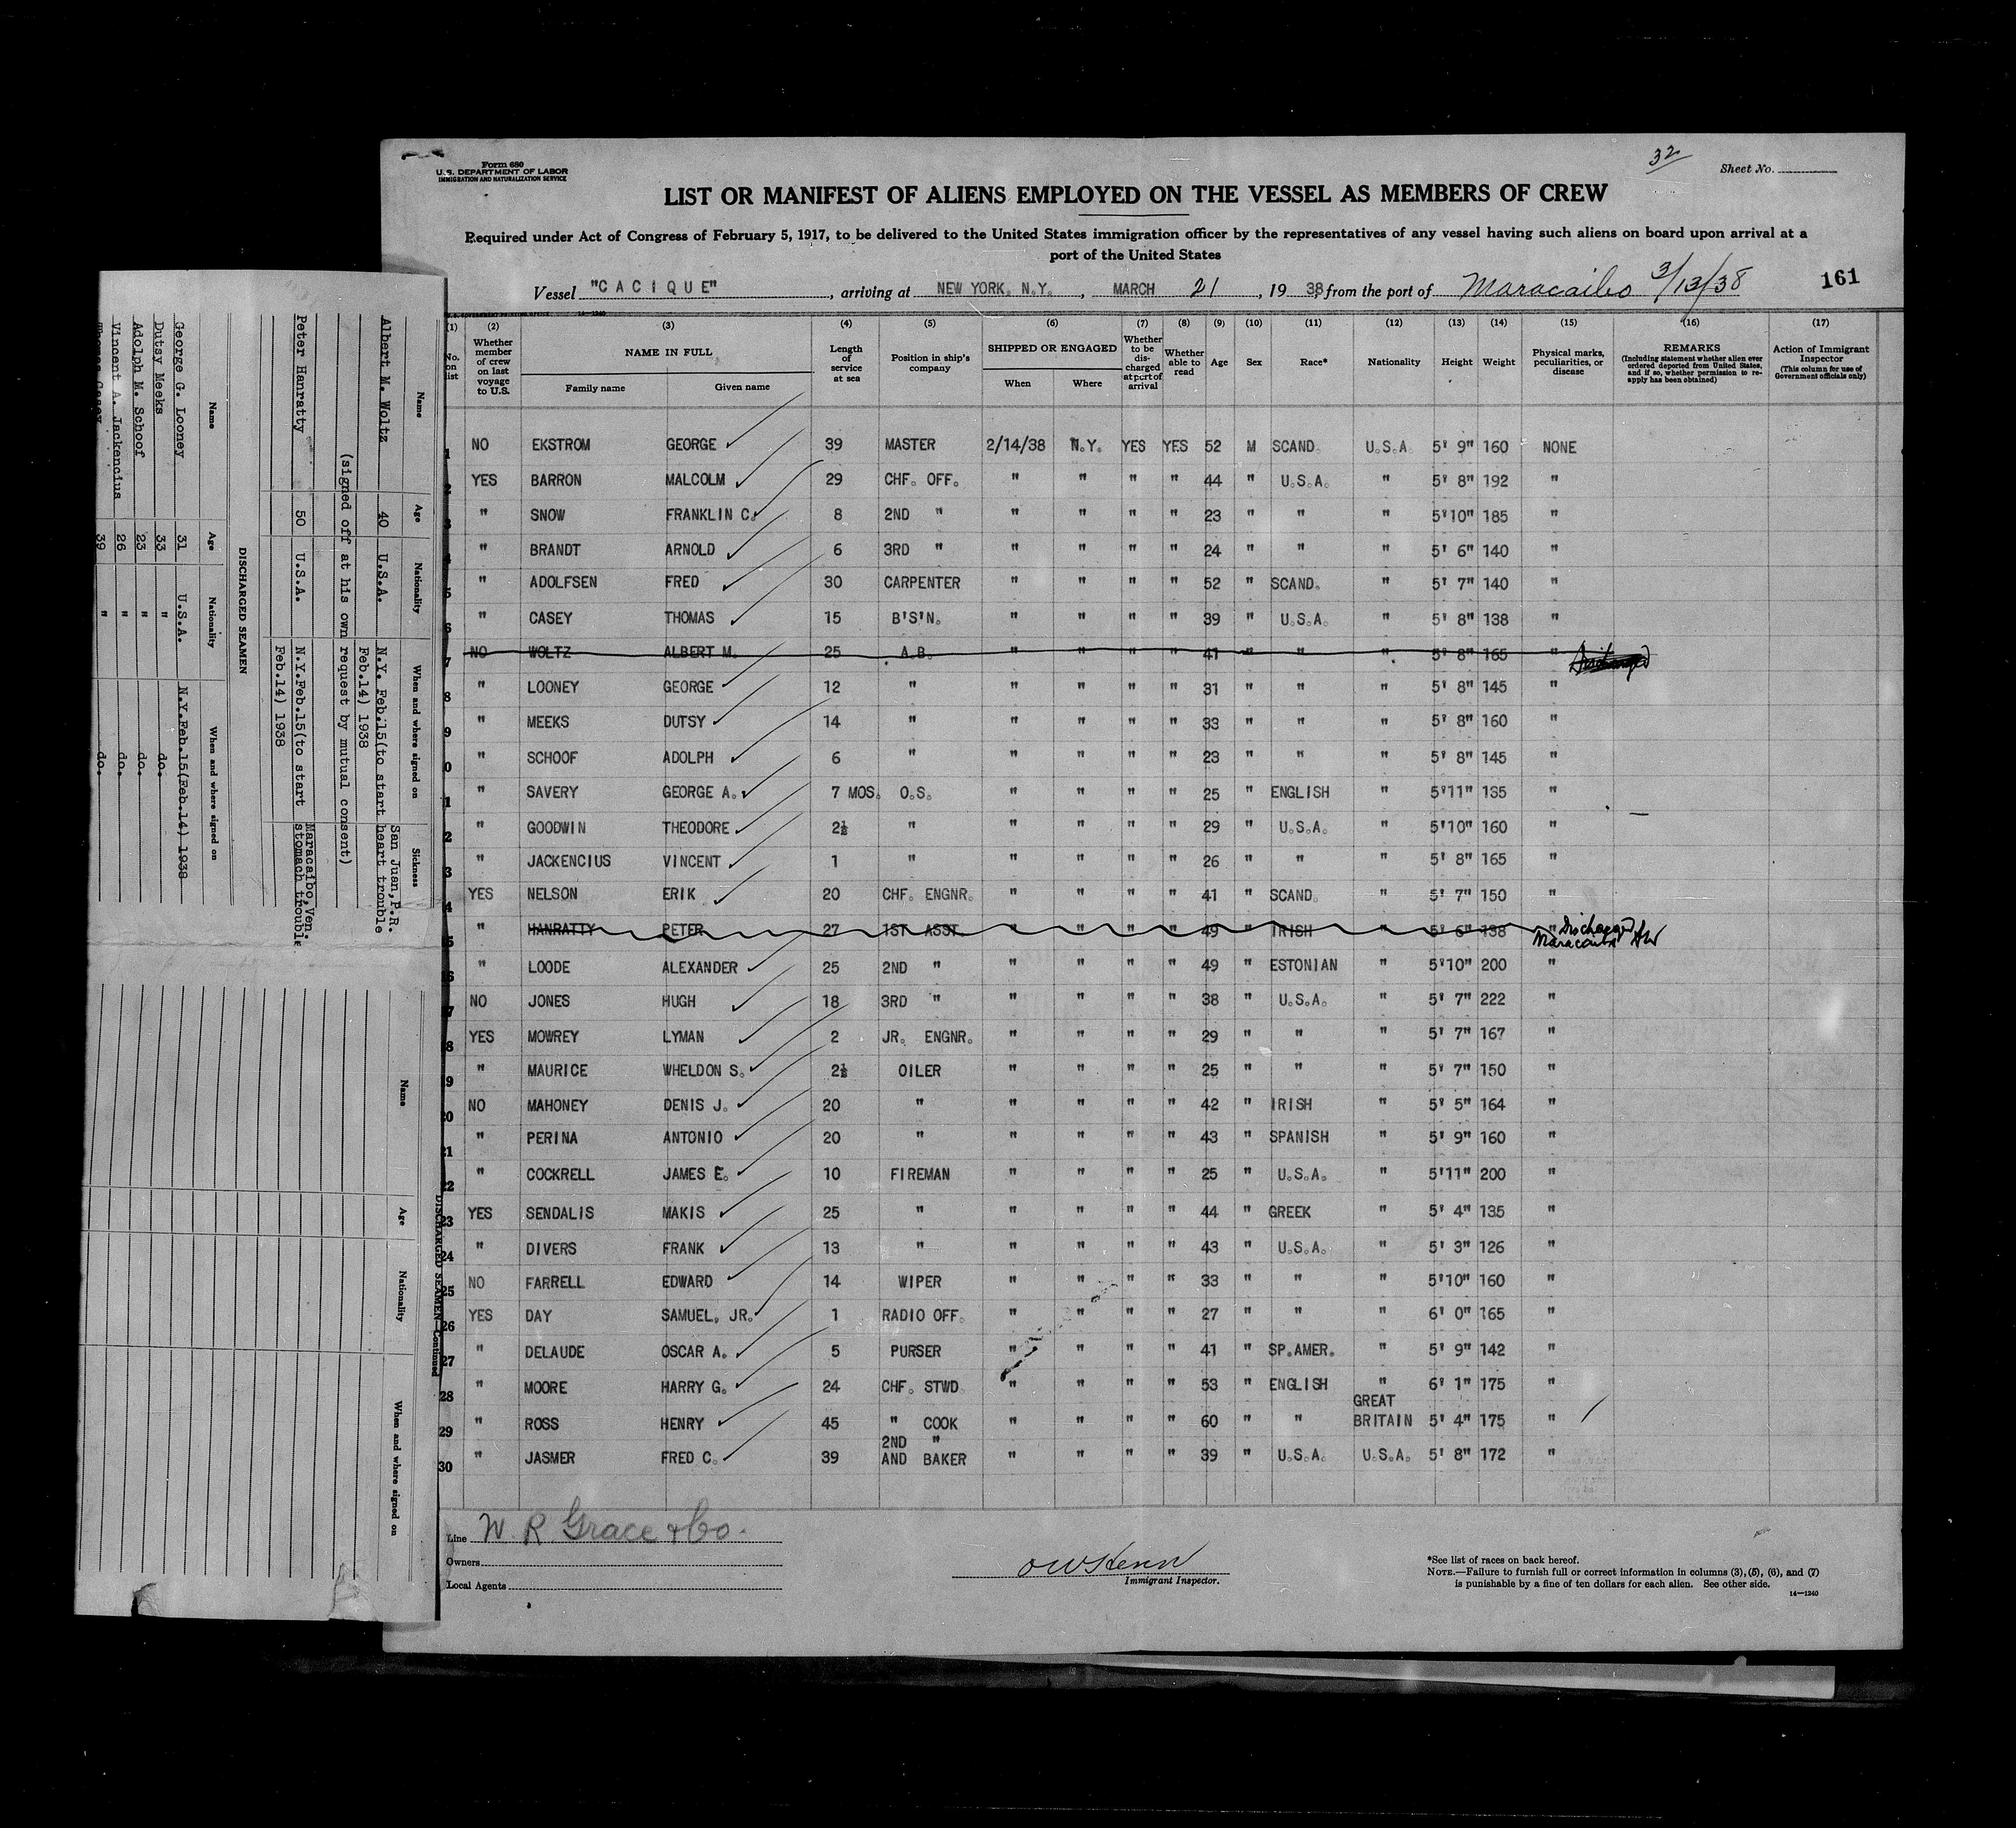 Form 680
U. S. DEPARTMENT OF LABOR
IMMIGRATION AND NATURALIZATION SERVICE
32
Sheet No.
LIST OR MANIFEST OF ALIENS EMPLOYED ON THE VESSEL AS MEMBERS OF CREW
Required under Act of Congress of February 5, 1917, to be delivered to the United States immigration officer by the representatives of any vessel having such aliens on board upon arrival at a
port of the United States
Vessel "CACIQUE", arriving at NEW YORK. N.Y., MARCH 21, 19 38, from the port of Maracaibo 3/13/38
161
(1) (2) (3) (4) (5) (6) (7) (8) (9) (10) (11) (12) (13) (14) (15) (16) (17)
No. on list
Whether member of crew on last voyage to U.S.
NAME IN FULL
Family name Given name
Length of service at sea
Position in ship's company
SHIPPED OR ENGAGED
When Where
Whether to be discharged at port of arrival
Whether able to read
Age
Sex
Race*
Nationality
Height
Weight
Physical marks, peculiarities, or disease
REMARKS
(Including statement whether alien ever ordered deported from United States, and if so, whether permission to reapply has been obtained)
Action of Immigrant Inspector
(This column for use of Government officials only)
1 NO EKSTROM GEORGE 39 MASTER 2/14/38 N.Y. YES YES 52 M SCAND. U.S.A. 5' 9" 160 NONE
2 YES BARRON MALCOLM 29 CHF. OFF. " " " " 44 " U.S.A. " 5' 8" 192 "
3 " SNOW FRANKLIN C. 8 2ND " " " " " 23 " " " 5'10" 185 "
4 " BRANDT ARNOLD 6 3RD " " " " " 24 " " " 5' 6" 140 "
5 " ADOLFSEN FRED 30 CARPENTER " " " " 52 " SCAND. " 5' 7" 140 "
6 " CASEY THOMAS 15 B'S'N. " " " " 39 " U.S.A. " 5' 8" 138 "
7 NO WOLTZ ALBERT M. 25 A.B. " " " " 41 " " " 5' 8" 165 " Discharged
8 " LOONEY GEORGE 12 " " " " " 31 " " " 5' 8" 145 "
9 " MEEKS DUTSY 14 " " " " " 33 " " " 5' 8" 160 "
0 " SCHOOF ADOLPH 6 " " " " " 23 " " " 5' 8" 145 "
1 " SAVERY GEORGE A. 7 MOS. O.S. " " " " 25 " ENGLISH " 5'11" 135 "
2 " GOODWIN THEODORE 2½ " " " " " 29 " U.S.A. " 5'10" 160 "
3 " JACKENCIUS VINCENT 1 " " " " " 26 " " " 5' 8" 165 "
4 YES NELSON ERIK 20 CHF. ENGNR. " " " " 41 " SCAND. " 5' 7" 150 "
5 " HANRATTY PETER 27 1ST ASST. " " " " 49 " IRISH " 5' 6" 138 " Discharged Maracaibo
6 " LOODE ALEXANDER 25 2ND " " " " " 49 " ESTONIAN " 5'10" 200 "
7 NO JONES HUGH 18 3RD " " " " " 38 " U.S.A. " 5' 7" 222 "
8 YES MOWREY LYMAN 2 JR. ENGNR. " " " " 29 " " " 5' 7" 167 "
19 " MAURICE WHELDON S. 2½ OILER " " " " 25 " " " 5' 7" 150 "
20 NO MAHONEY DENIS J. 20 " " " " " 42 " IRISH " 5' 5" 164 "
21 " PERINA ANTONIO 20 " " " " " 43 " SPANISH " 5' 9" 160 "
22 " COCKRELL JAMES E. 10 FIREMAN " " " " 25 " U.S.A. " 5'11" 200 "
23 YES SENDALIS MAKIS 25 " " " " " 44 " GREEK " 5' 4" 135 "
24 " DIVERS FRANK 13 " " " " " 43 " U.S.A. " 5' 3" 126 "
25 NO FARRELL EDWARD 14 WIPER " " " " 33 " " " 5'10" 160 "
26 YES DAY SAMUEL, JR. 1 RADIO OFF. " " " " 27 " " " 6' 0" 165 "
27 " DELAUDE OSCAR A. 5 PURSER " " " " 41 " SP.AMER. " 5' 9" 142 "
28 " MOORE HARRY G. 24 CHF. STWD. " " " " 53 " ENGLISH " 6' 1" 175 "
29 " ROSS HENRY 45 " COOK " " " " 60 " " GREAT BRITAIN 5' 4" 175 "
30 " JASMER FRED C. 39 2ND " AND BAKER " " " " 39 " U.S.A. U.S.A. 5' 8" 172 "
Line W. R. Grace & Co.
Owners
Local Agents
Immigrant Inspector.
*See list of races on back hereof.
NOTE.—Failure to furnish full or correct information in columns (3), (5), (6), and (7)
is punishable by a fine of ten dollars for each alien. See other side.
14—1240
Name Age Nationality When and where signed on Sickness
Albert M. Woltz 40 U.S.A. N.Y. Feb.15(to start Feb.14) 1938 San Juan, P.R. heart trouble
(signed off at his own request by mutual consent)
Peter Hanratty 50 U.S.A. N.Y.Feb.15(to start Feb.14) 1938 Maracaibo, Ven. stomach trouble
DISCHARGED SEAMEN
Name Age Nationality When and where signed on
George G. Looney 31 U.S.A. N.Y.Feb.15(Feb.14) 1938
Dutsy Meeks 33 " do.
Adolph M. Schoof 23 " do.
Vincent A. Jackencius 26 " do.
Thomas Casey 39 " do.
DISCHARGED SEAMEN—Continued
Name Age Nationality When and where signed on